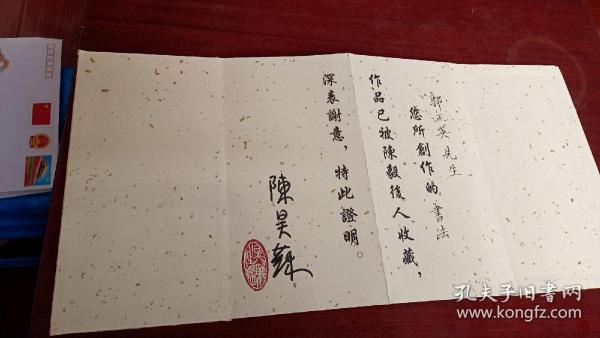 郭正英先生
您所創作的書法
作品已被陳毅後人收藏，
深表謝意，特此證明。
陳昊蘇
孔夫子旧书网
www.kongfz.com